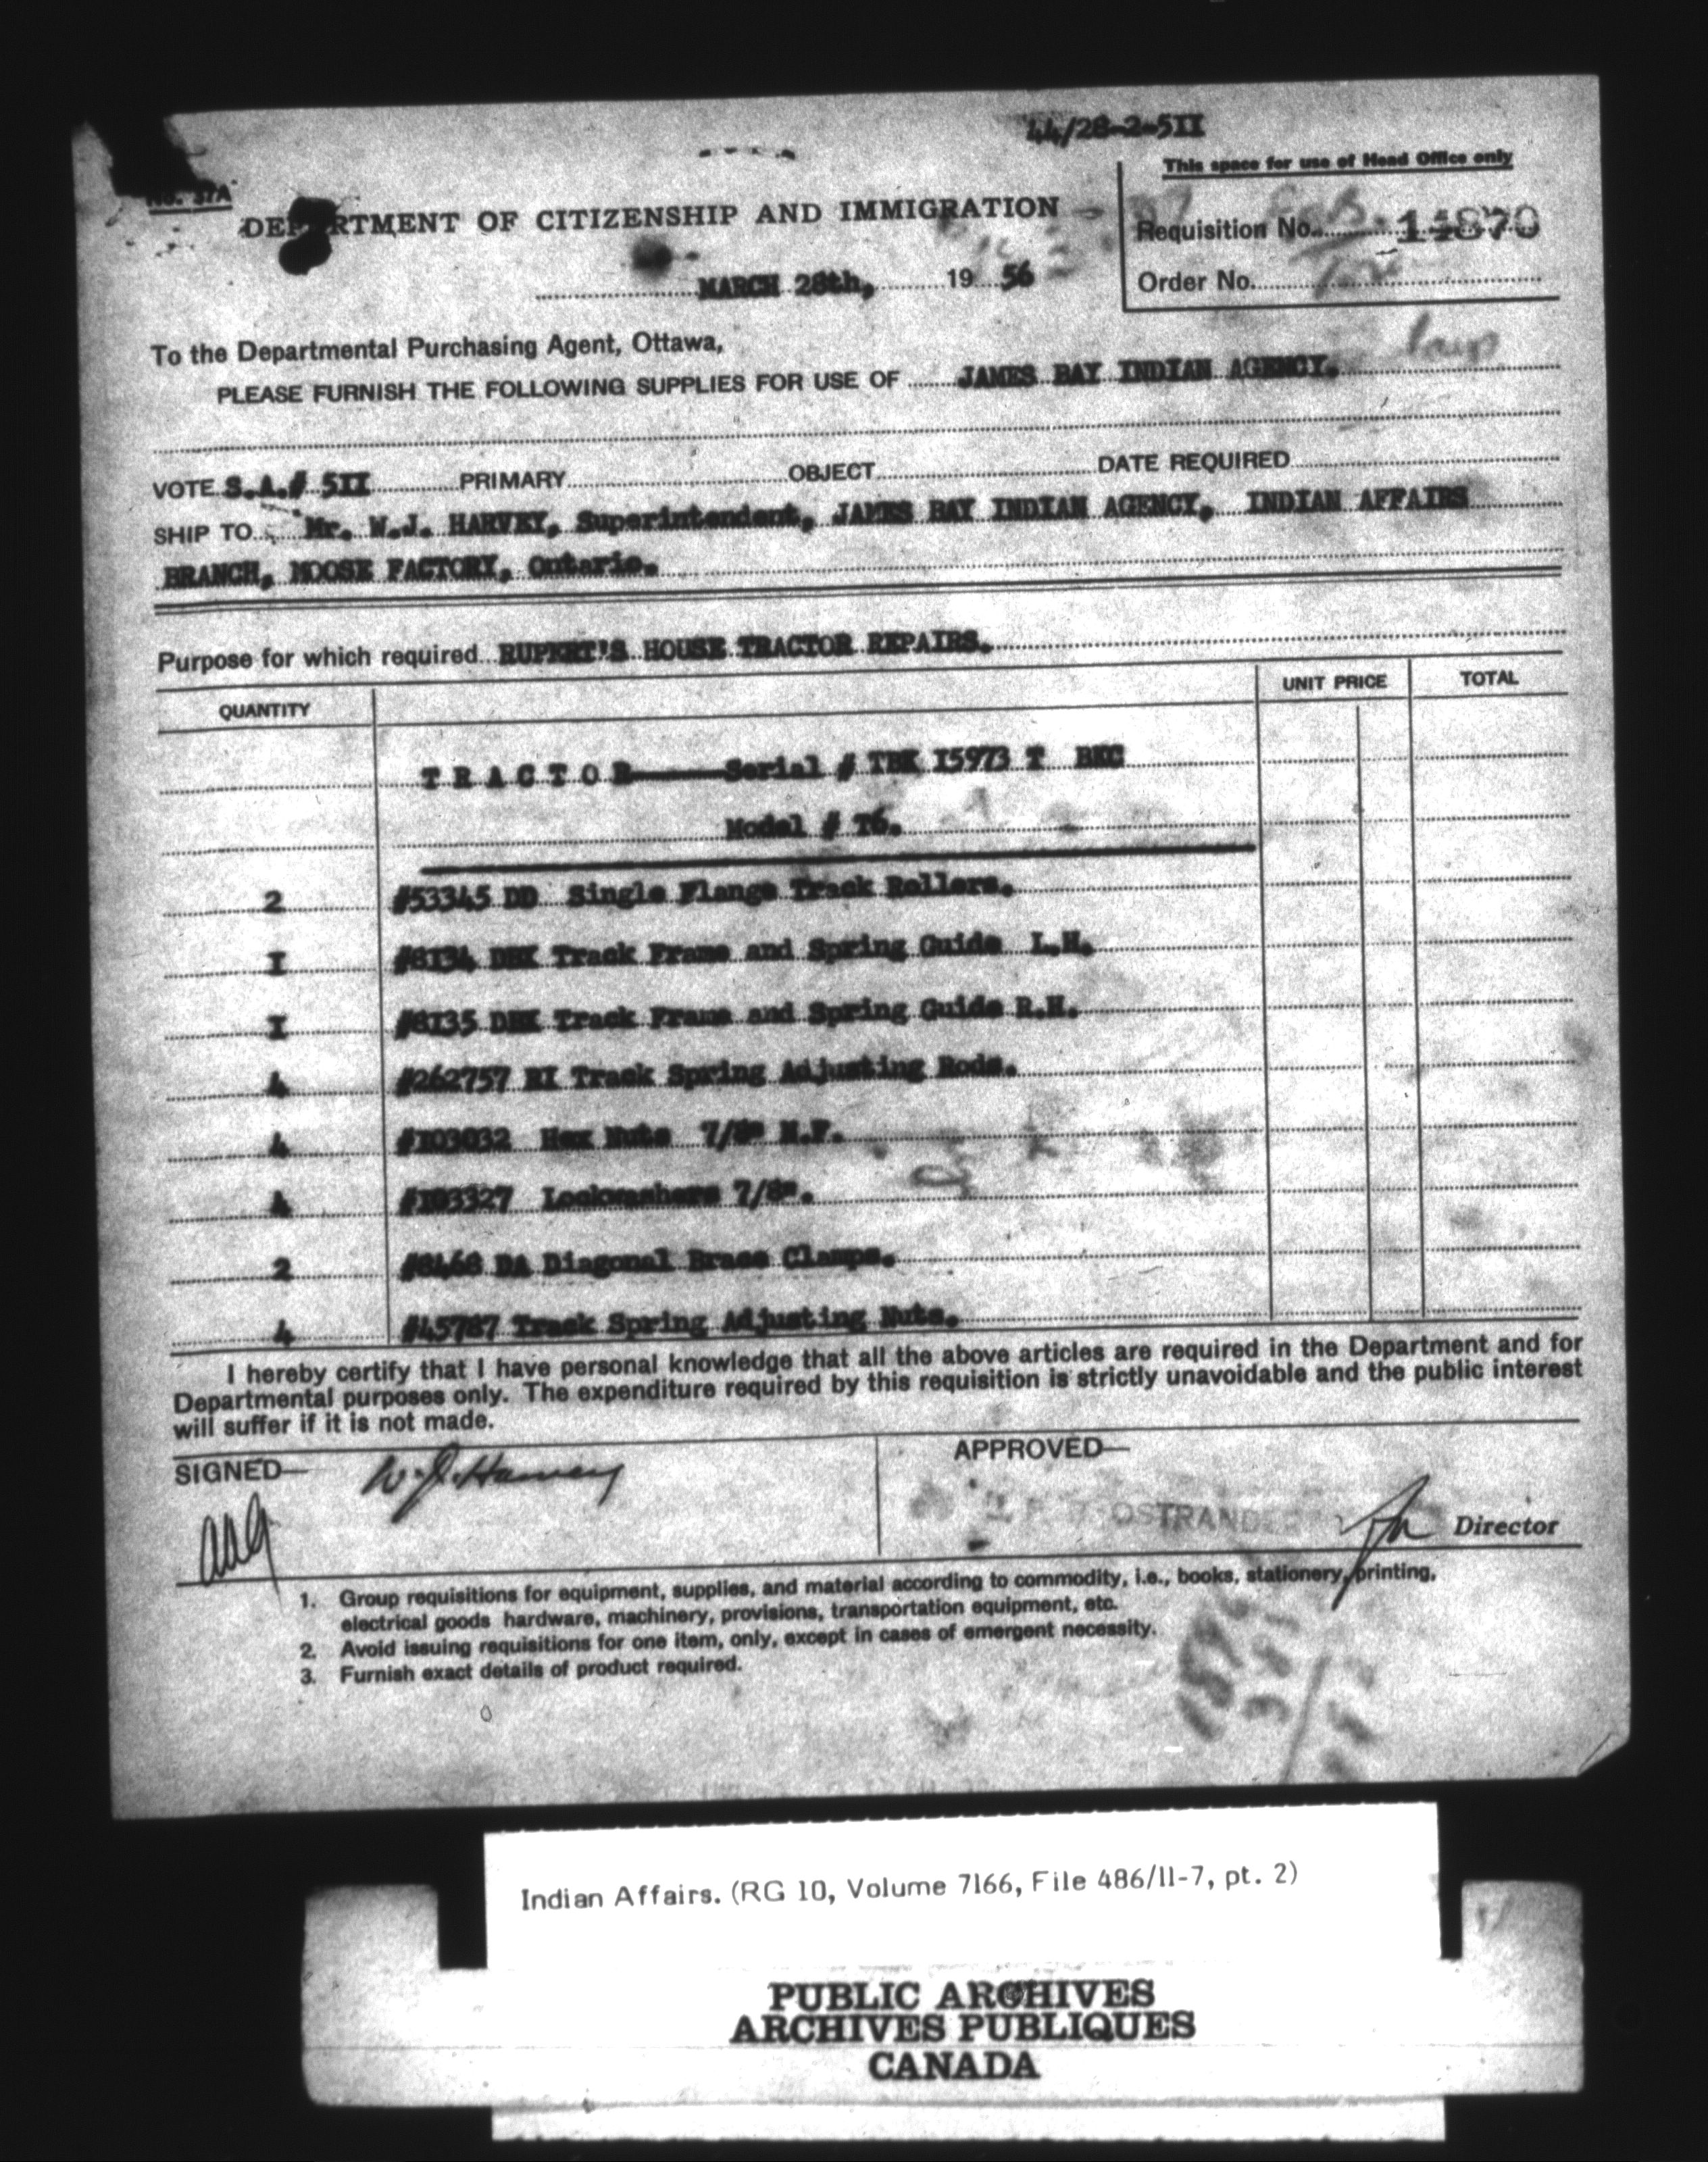 44/28-2-5II
This space for use of Head Office only
No. 37A
DEPARTMENT OF CITIZENSHIP AND IMMIGRATION
Requisition No. 14870
MARCH 28th, 19 56
Order No.
To the Departmental Purchasing Agent, Ottawa,
PLEASE FURNISH THE FOLLOWING SUPPLIES FOR USE OF JAMES BAY INDIAN AGENCY.
VOTE S.A.# 5II PRIMARY OBJECT DATE REQUIRED
SHIP TO Mr. W.J. HARVEY, Superintendent, JAMES BAY INDIAN AGENCY, INDIAN AFFAIRS
BRANCH, MOOSE FACTORY, Ontario.
Purpose for which required RUPERT'S HOUSE TRACTOR REPAIRS.
QUANTITY UNIT PRICE TOTAL
T R A C T O R Serial # TBK I5973 T BEC
Model # T6.
2 #53345 DD Single Flange Track Rollers.
I #8I34 DBX Track Frame and Spring Guide L.H.
I #8I35 DBX Track Frame and Spring Guide R.H.
4 #262757 RI Track Spring Adjusting Rods.
4 #I03032 Hex Nuts 7/8" N.F.
4 #I03327 Lockwashers 7/8".
2 #8468 DA Diagonal Brace Clamps.
4 #45787 Track Spring Adjusting Nuts.
I hereby certify that I have personal knowledge that all the above articles are required in the Department and for
Departmental purposes only. The expenditure required by this requisition is strictly unavoidable and the public interest
will suffer if it is not made.
SIGNED— W.J. Harvey
APPROVED—
OSTRANDER Director
1. Group requisitions for equipment, supplies, and material according to commodity, i.e., books, stationery, printing,
electrical goods hardware, machinery, provisions, transportation equipment, etc.
2. Avoid issuing requisitions for one item, only, except in cases of emergent necessity.
3. Furnish exact details of product required.
Indian Affairs. (RG 10, Volume 7166, File 486/11-7, pt. 2)
PUBLIC ARCHIVES
ARCHIVES PUBLIQUES
CANADA